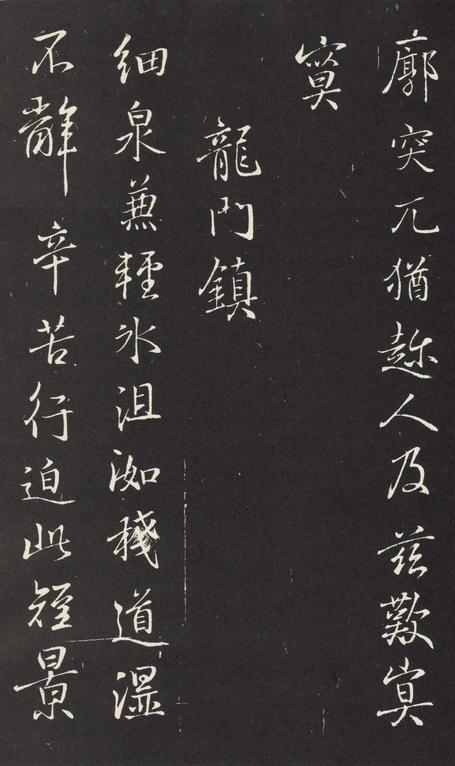 廓突兀猶趂人及茲歎冥
寞
龍門鎮
細泉兼輕冰沮洳棧道濕
不辭辛苦行迫此短景